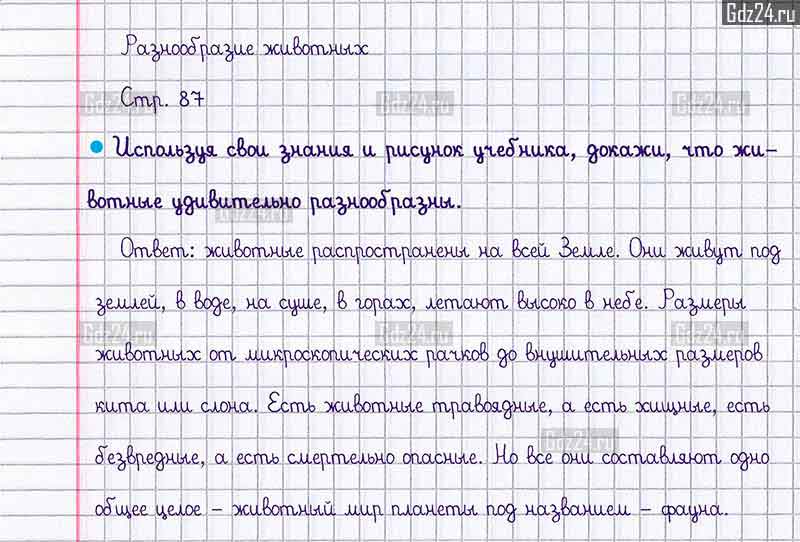 Gdz24.ru
Разнообразие животных
Стр. 87
Gdz24.ru Gdz24.ru Gdz24.ru
Используя свои знания и рисунок учебника, докажи, что жи-
вотные удивительно разнообразны.
Gdz24.ru
Ответ: животные распространены на всей Земле. Они живут под
землей, в воде, на суше, в горах, летают высоко в небе. Размеры
Gdz24.ru Gdz24.ru Gdz24.ru
животных от микроскопических рачков до внушительных размеров
кита или слона. Есть животные травоядные, а есть хищные, есть
Gdz24.ru
безвредные, а есть смертельно опасные. Но все они составляют одно
общее целое – животный мир планеты под названием – фауна.